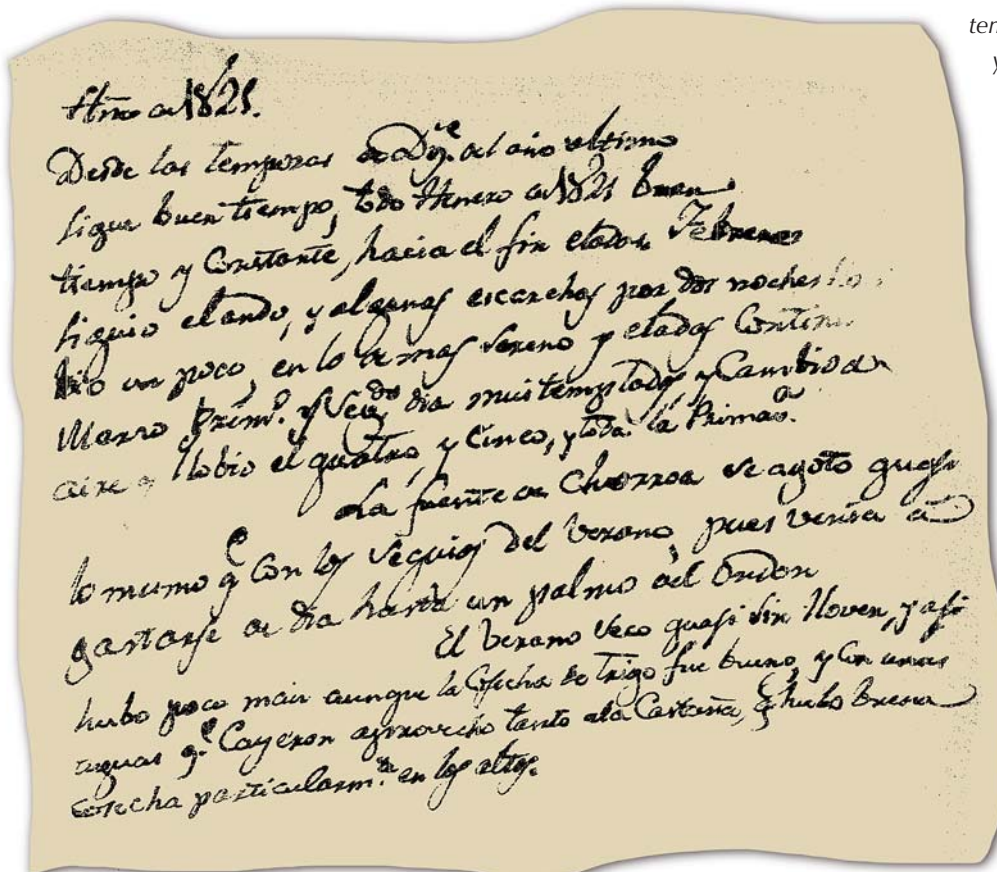 ten
y
Año de 1821.
Desde las temporas de Dz.e del año ultimo
sigue buen tiempo, todo Henero de 1821 buen
tiempo y Constante, hacia el fin eladas Febrero
siguio elando, y algunas escarchas por dos noches
bio un poco, en lo demas sereno y eladas Contin
Marzo Prim.o y Seg.do dia mui templados, y Cambio de
aire llobio el quatro, y Cinco, y toda la Prima.a
La fuente de Chorroa se agoto quasi
lo mismo q.e con los sequios del berano, pues venia a
gastarse de dia hasta un palmo del
El berano seco quasi sin llover, y asi
hubo poco maiz aunque la Cosecha de trigo fue bueno, y con unas
aguas q.e Cayeron aprovecho tanto a la Castaña, q.e hubo buena
cosecha particularm.te en los altos.